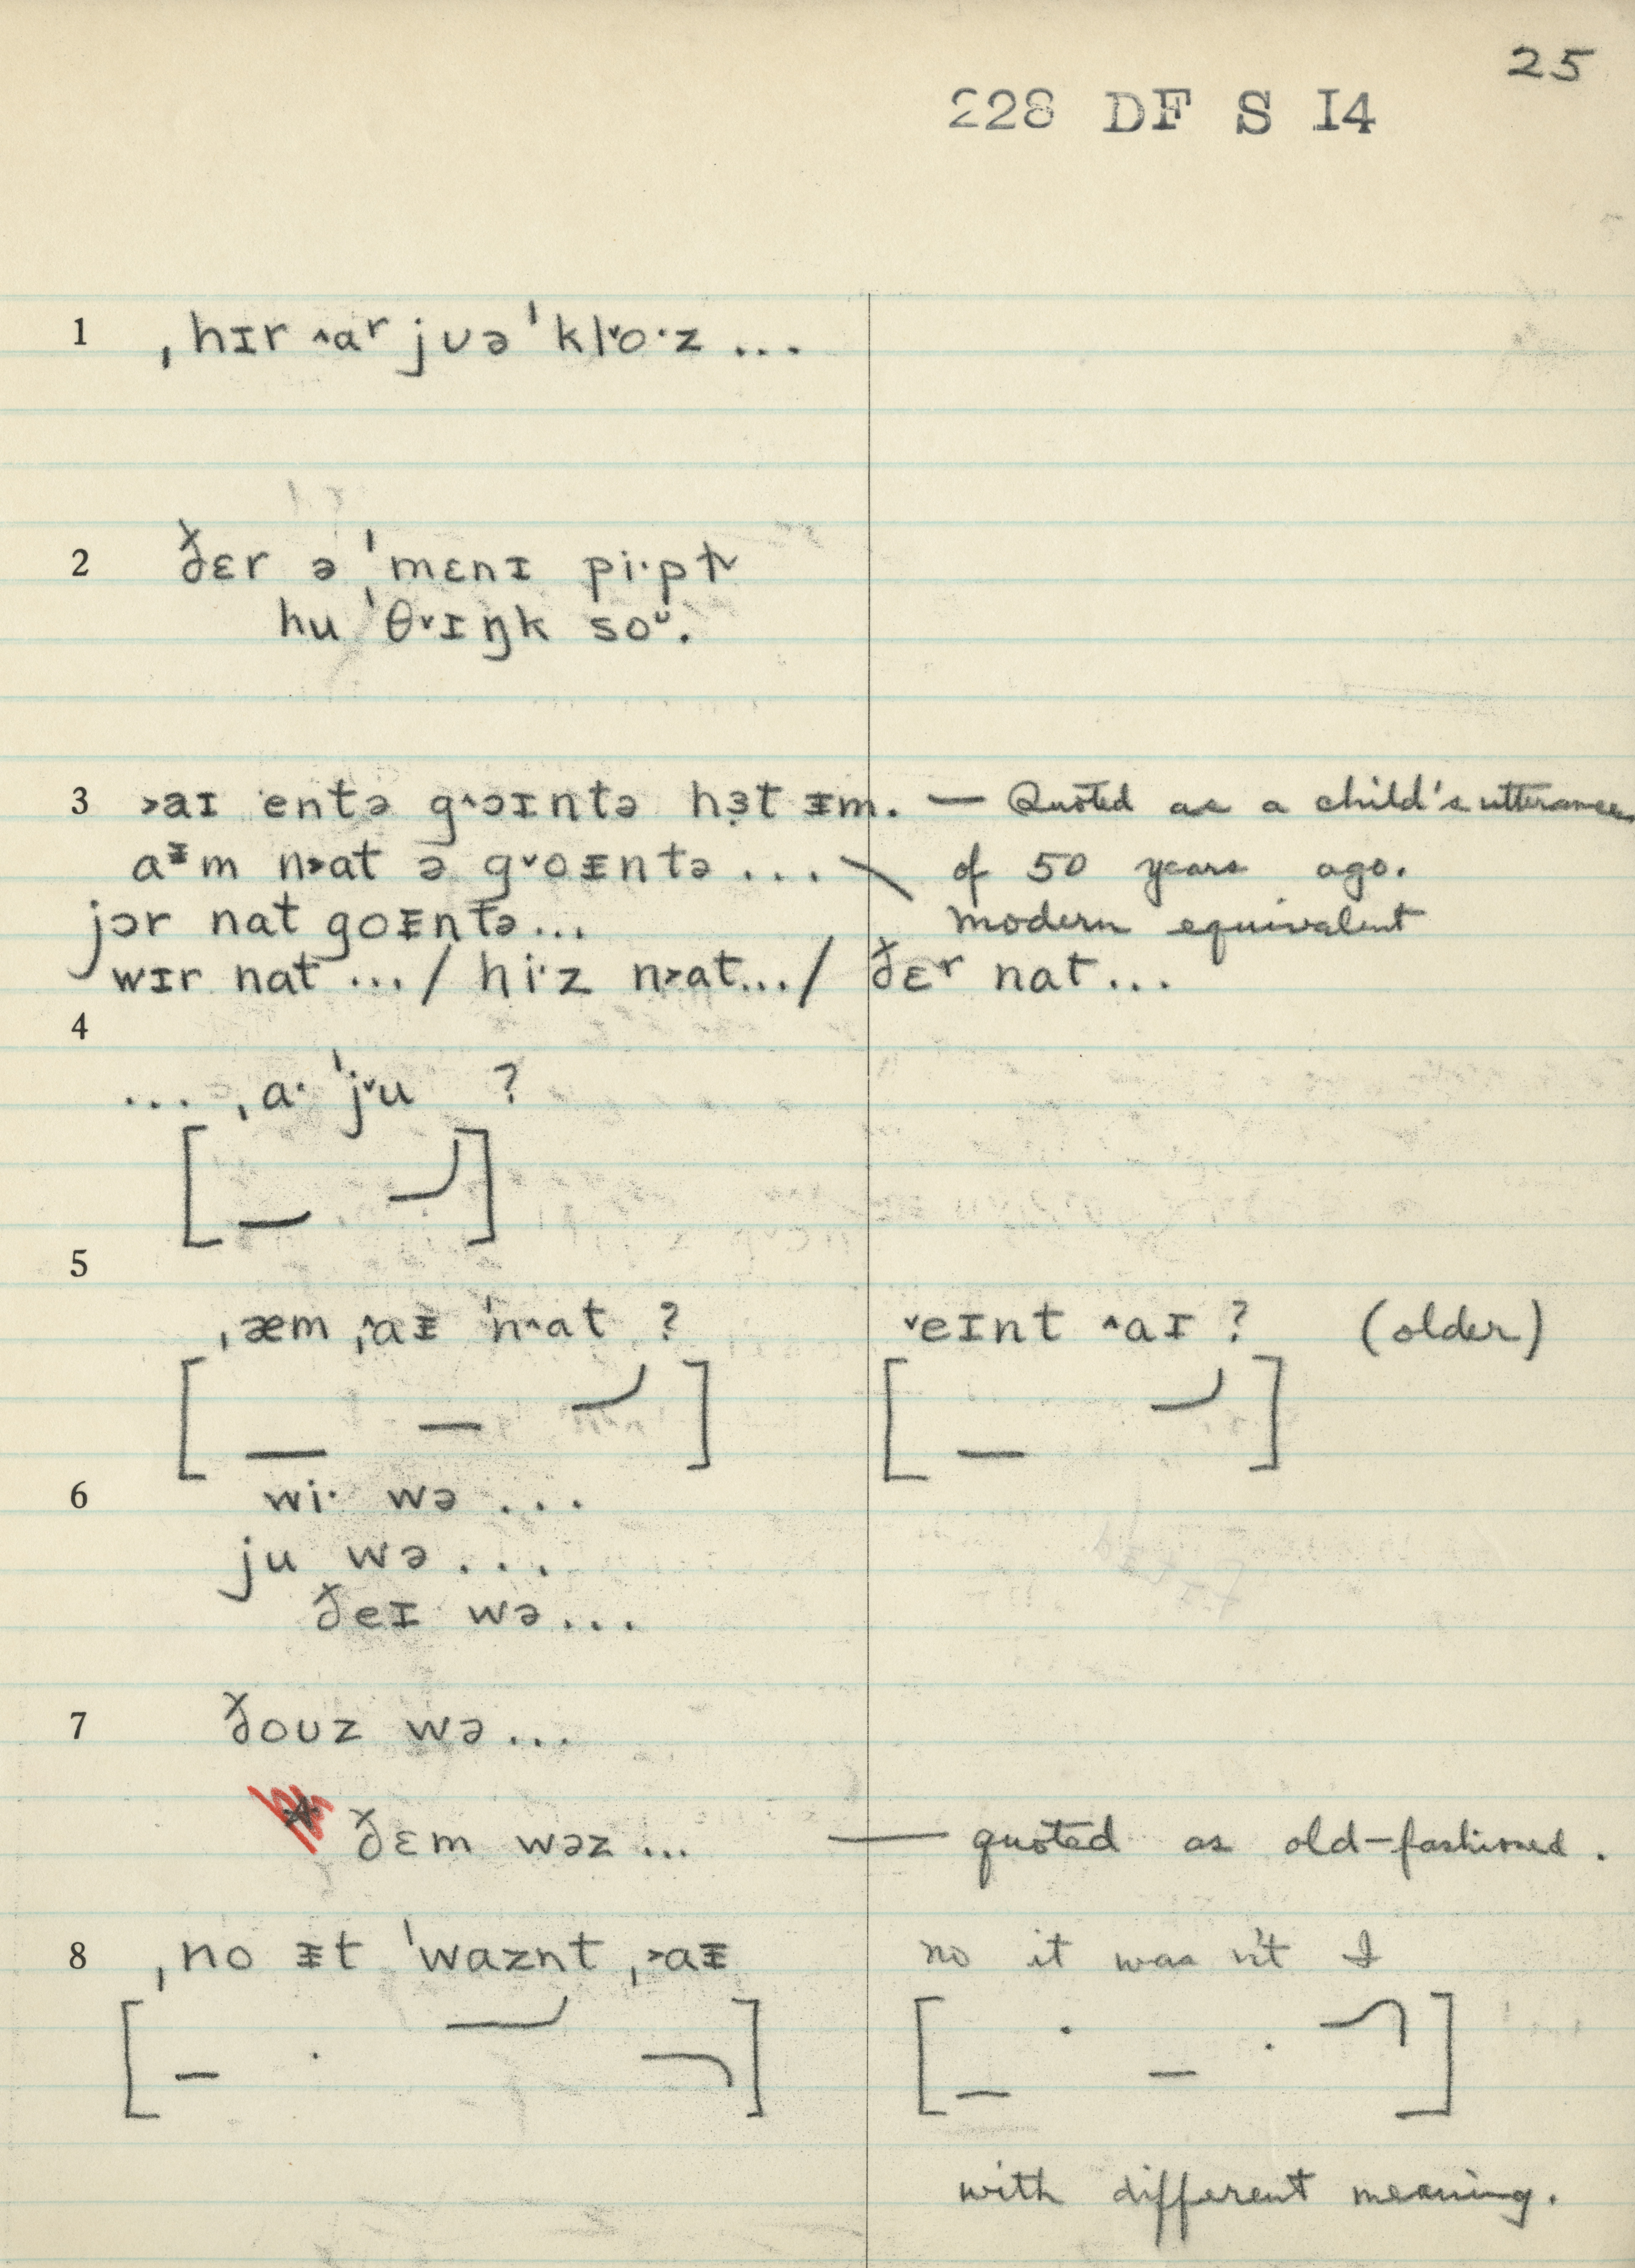 25
228 DF S I4
1 ˌhɪr ˄aʳ jʊə ˈkl˅o·z ...
2 ðɛr ə ˈmɛnɪ pi·pl̩
hu ˈθ˅ɪŋk soᶷ.
3 ˃aɪ entə g˄ɔɪntə hɜ̣t ᵻm. — Quoted as a child's utterance
aᵻm n˃at ə g˅oᵻntə ... \ of 50 years ago.
jɔr nat goᵻntə... modern equivalent
wɪr nat ... / hi·z n˃at... / ðɛʳ nat ...
4
... ˌa· ˈj˅u ?
5
ˌæm ˌ˄aᵻ ˈn˄at ? ˅eɪnt ˄aɪ ? (older)
6 wi· wə ...
ju wə ...
ðeɪ wə ...
7 ðoʊz wə ...
ðɛm wəz ... — quoted as old-fashioned.
8 ˌno ᵻt ˈwaznt ˌ˃aᵻ no it was n't I
with different meaning.